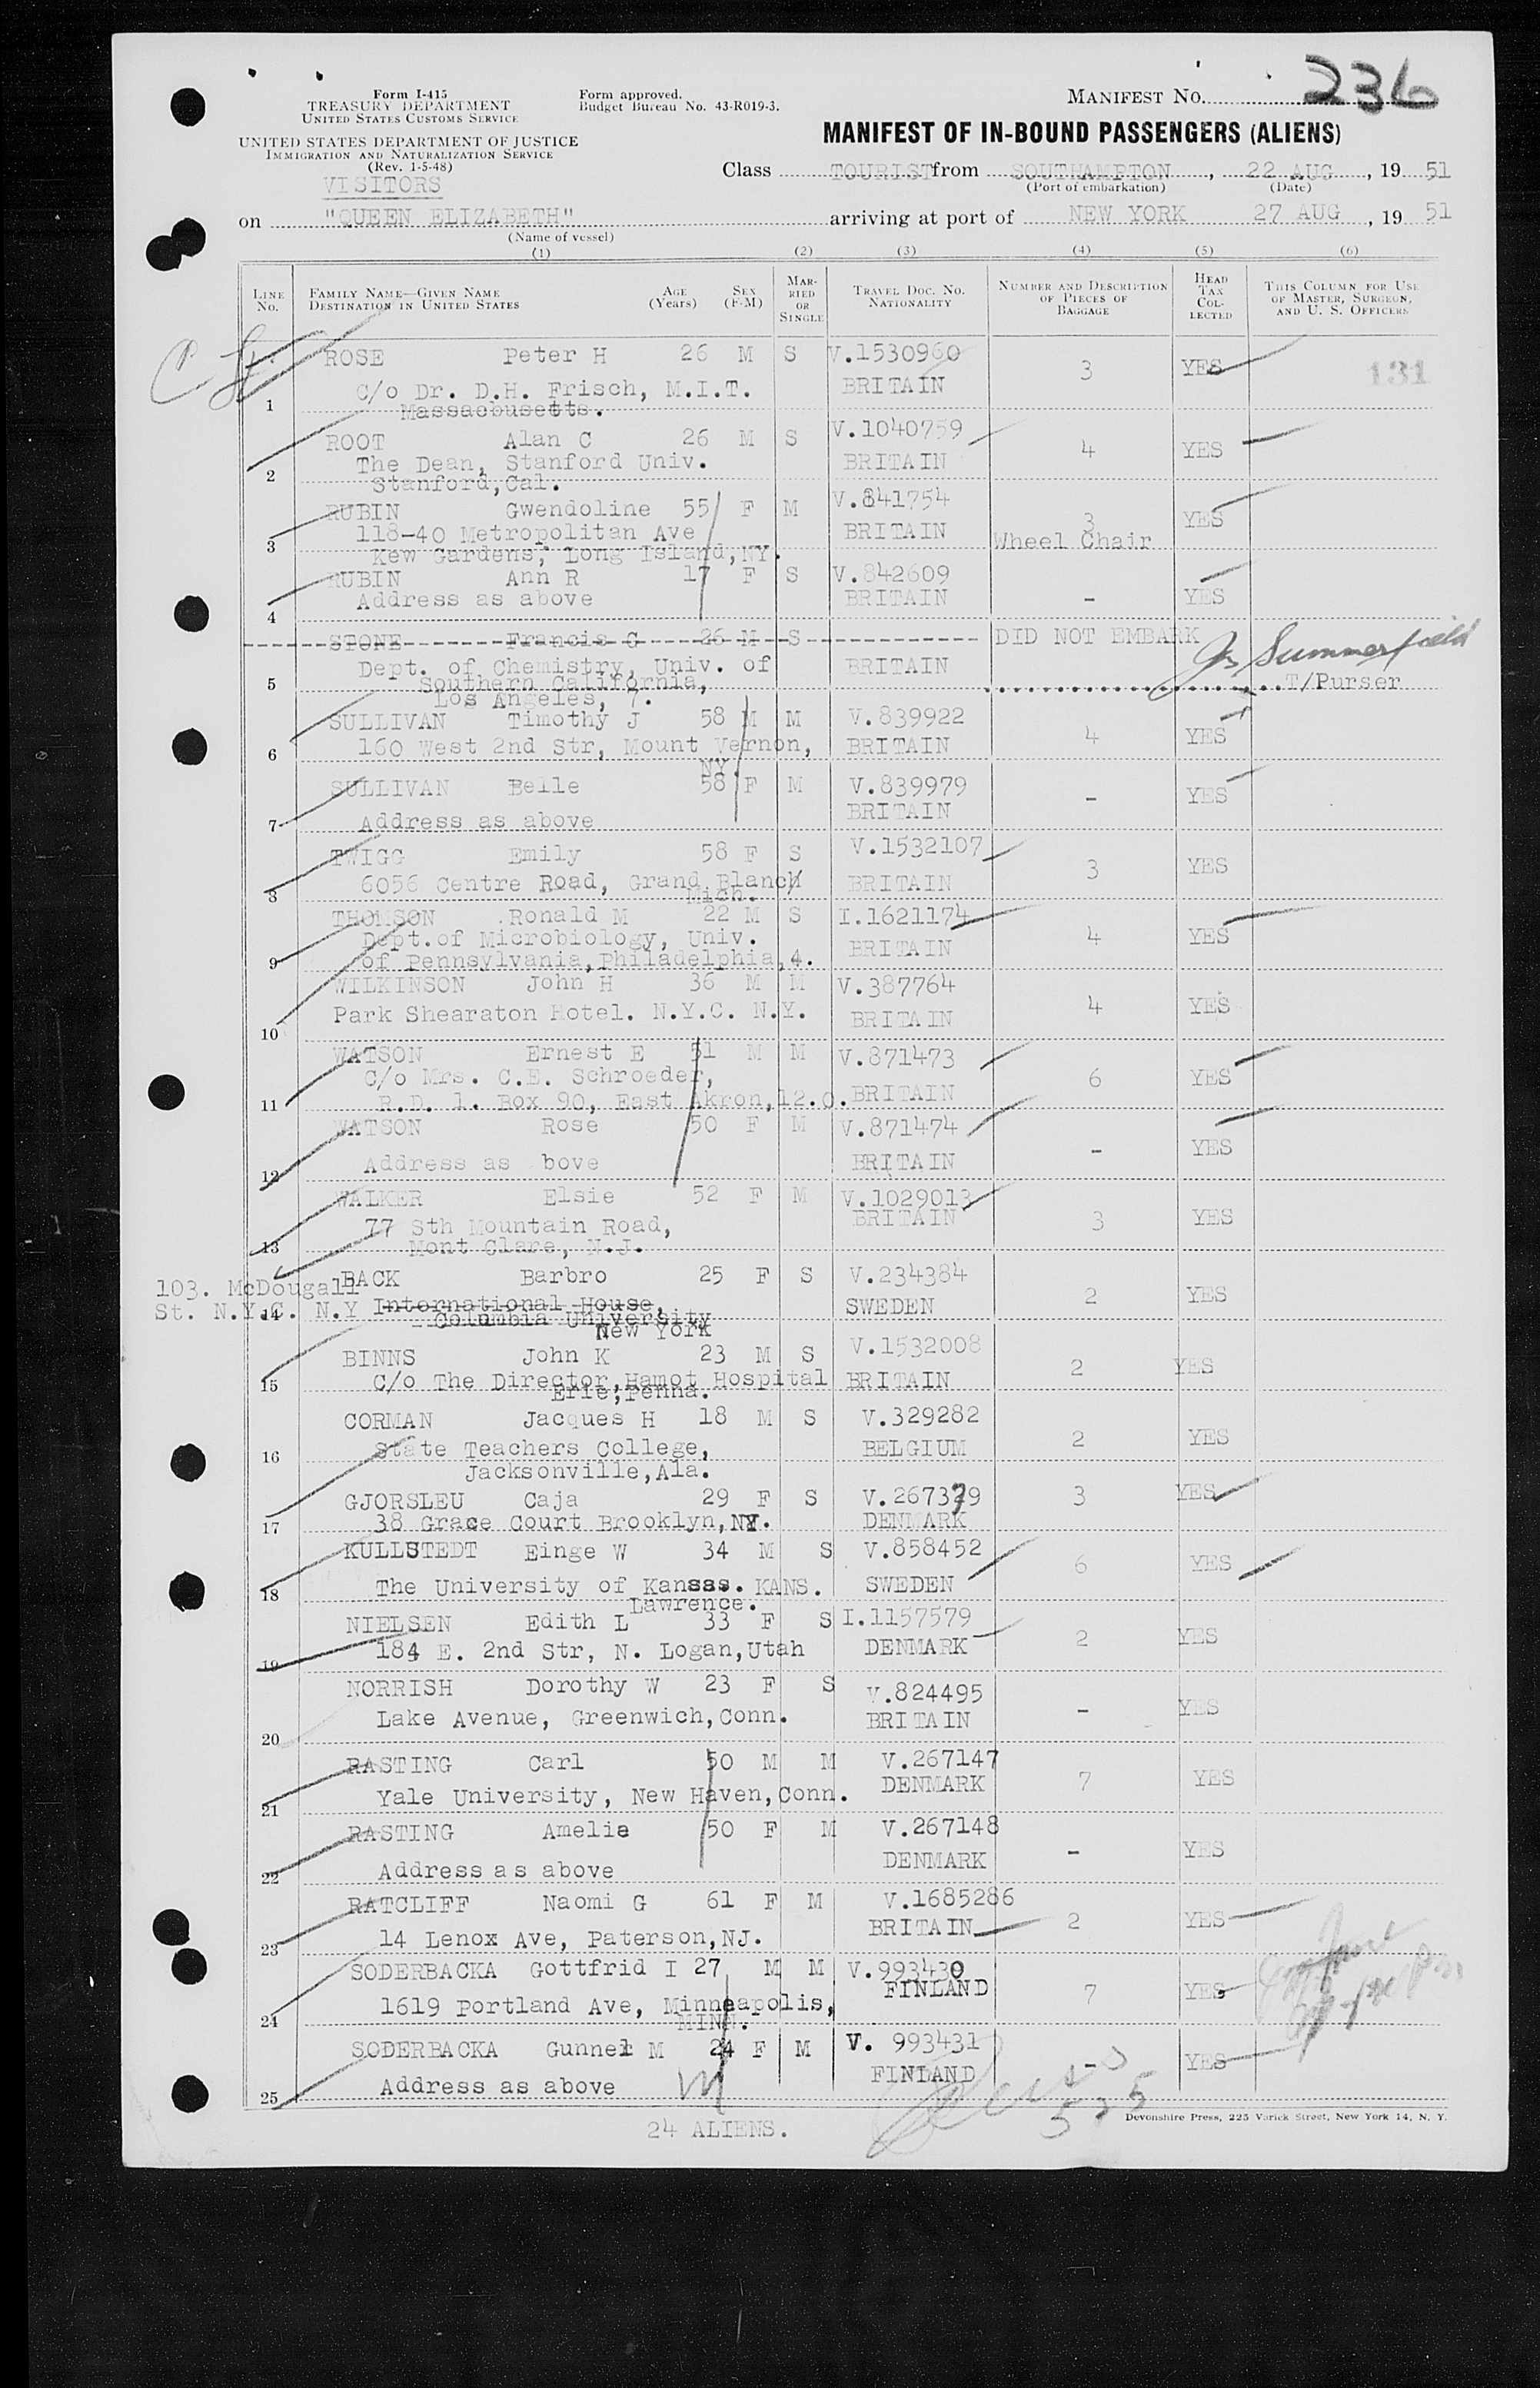 236
Form I-415
TREASURY DEPARTMENT
UNITED STATES CUSTOMS SERVICE
Form approved.
Budget Bureau No. 43-R019-3.
MANIFEST NO.
UNITED STATES DEPARTMENT OF JUSTICE
IMMIGRATION AND NATURALIZATION SERVICE
(Rev. 1-5-48)
MANIFEST OF IN-BOUND PASSENGERS (ALIENS)
VISITORS
Class TOURIST from SOUTHAMPTON, 22 AUG, 19 51
(Port of embarkation) (Date)
on "QUEEN ELIZABETH" arriving at port of NEW YORK 27 AUG, 19 51
(Name of vessel)
(1) (2) (3) (4) (5) (6)
LINE No. FAMILY NAME—GIVEN NAME DESTINATION IN UNITED STATES AGE (Years) SEX (F-M) MARRIED OR SINGLE TRAVEL DOC. NO. NATIONALITY NUMBER AND DESCRIPTION OF PIECES OF BAGGAGE HEAD TAX COLLECTED THIS COLUMN FOR USE OF MASTER, SURGEON, AND U. S. OFFICERS
ROSE Peter H 26 M S V.1530960 3 YES 131
C/o Dr. D.H. Frisch, M.I.T. BRITAIN
1 Massacbusetts.
ROOT Alan C 26 M S V.1040759 4 YES
The Dean, Stanford Univ. BRITAIN
2 Stanford,Cal.
RUBIN Gwendoline 55 F M V.841754 3 YES
118-40 Metropolitan Ave BRITAIN
3 Kew Gardens, Long Island,NY. Wheel Chair
RUBIN Ann R 17 F S V.842609 - YES
4 Address as above BRITAIN
STONE Francis G 26 M S DID NOT EMBARK
Summerfield
Dept. of Chemistry, Univ. of BRITAIN
5 Southern California, T/Purser
Los Angeles, 7.
SULLIVAN Timothy J 58 M M V.839922 4 YES
6 160 West 2nd Str, Mount Vernon, BRITAIN
NY.
SULLIVAN Belle 58 F M V.839979 - YES
7 Address as above BRITAIN
TWIGG Emily 58 F S V.1532107 3 YES
8 6056 Centre Road, Grand Blanch BRITAIN
Mich.
THOMSON Ronald M 22 M S I.1621174 4 YES
Dept.of Microbiology, Univ. BRITAIN
9 of Pennsylvania,Philadelphia,4.
WILKINSON John H 36 M M V.387764 4 YES
10 Park Shearaton Hotel. N.Y.C. N.Y. BRITAIN
WATSON Ernest E 51 M M V.871473 6 YES
C/o Mrs. C.E. Schroeder,
11 R.D. 1. Box 90, East Akron,12.O. BRITAIN
WATSON Rose 50 F M V.871474 - YES
12 Address as bove BRITAIN
WALKER Elsie 52 F M V.1029013 3 YES
77 Sth Mountain Road, BRITAIN
13 Mont Clare, N.J.
BACK Barbro 25 F S V.234384 2 YES
103. McDougall
St. N.Y.C. N.Y
14 International House, SWEDEN
Columbia University
New York
BINNS John K 23 M S V.1532008 2 YES
15 C/o The Director,Hamot Hospital BRITAIN
Erie,Penna.
CORMAN Jacques H 18 M S V.329282 2 YES
16 State Teachers College, BELGIUM
Jacksonville,Ala.
GJORSLEU Caja 29 F S V.267379 3 YES
17 38 Grace Court Brooklyn,NY. DENMARK
KULLSTEDT Einge W 34 M S V.858452 6 YES
18 The University of Kansas. KANS. SWEDEN
Lawrence.
NIELSEN Edith L 33 F S I.1157579 2 YES
19 184 E. 2nd Str, N. Logan,Utah DENMARK
NORRISH Dorothy W 23 F S V.824495 - YES
20 Lake Avenue, Greenwich,Conn. BRITAIN
RASTING Carl 50 M M V.267147 7 YES
21 Yale University, New Haven,Conn. DENMARK
RASTING Amelie 50 F M V.267148 - YES
22 Address as above DENMARK
RATCLIFF Naomi G 61 F M V.1685286 2 YES
23 14 Lenox Ave, Paterson,NJ. BRITAIN
SODERBACKA Gottfrid I 27 M M V.993430 7 YES
24 1619 Portland Ave, Minneapolis, FINLAND
MINN.
SODERBACKA Gunnel M 24 F M V. 993431 - YES
25 Address as above FINLAND
525
Devonshire Press, 225 Varick Street, New York 14, N. Y.
24 ALIENS.